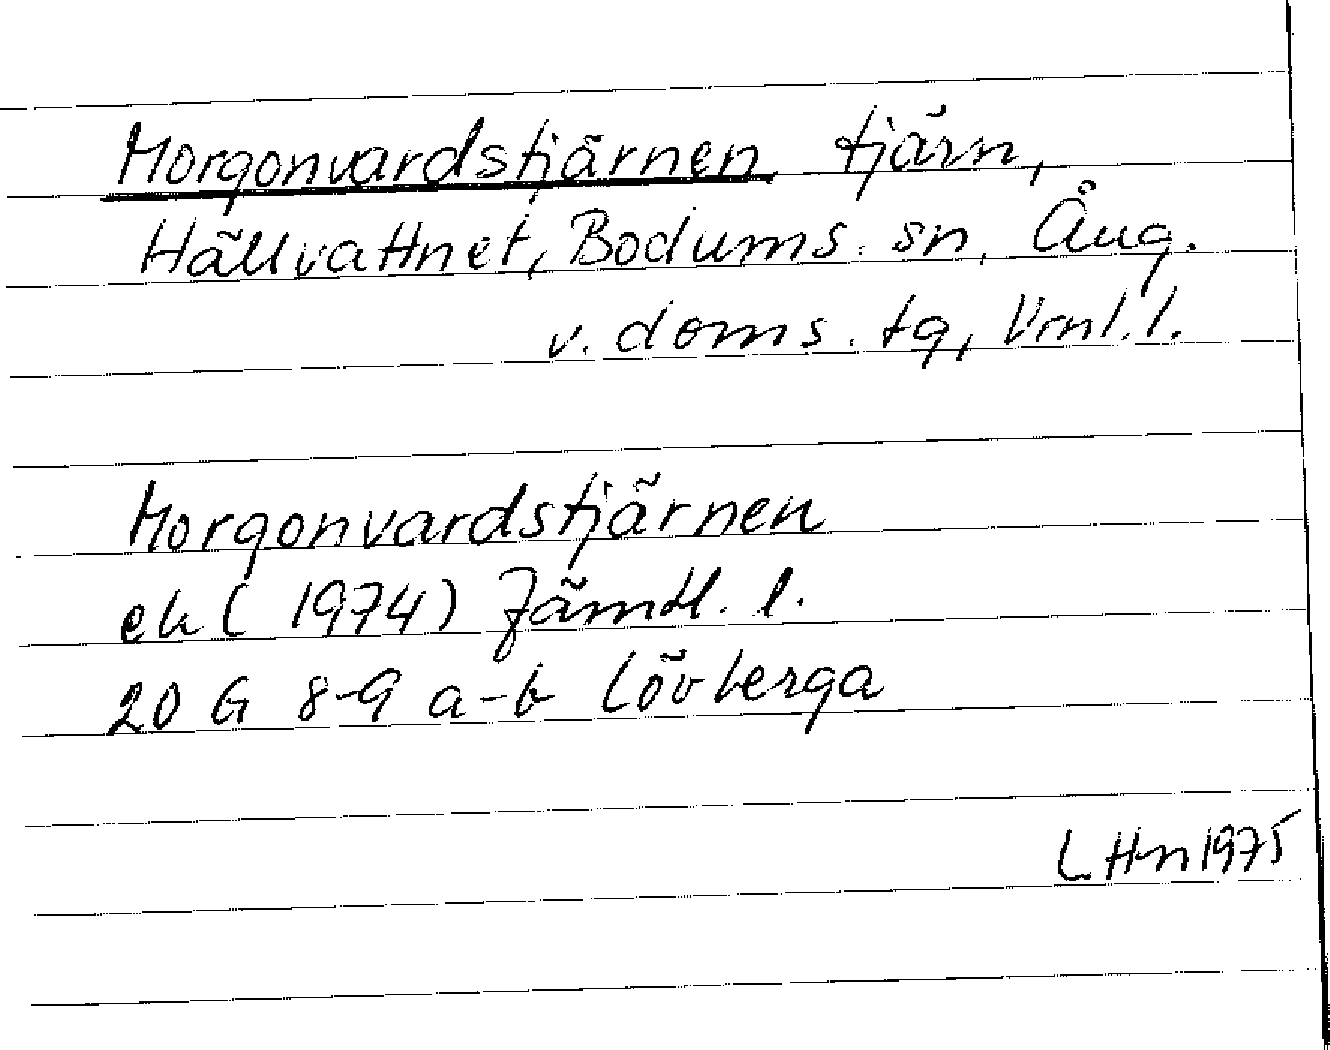 Morgonvardstjärnen, tjärn,
Hällvattnet, Bodums. sn, Ång.
v. doms. tg, Vrnl. l.
Morgonvardstjärnen
ek (1974) Jämtl. l.
20 G 8-9 a-b Lövberga
LHn 1975